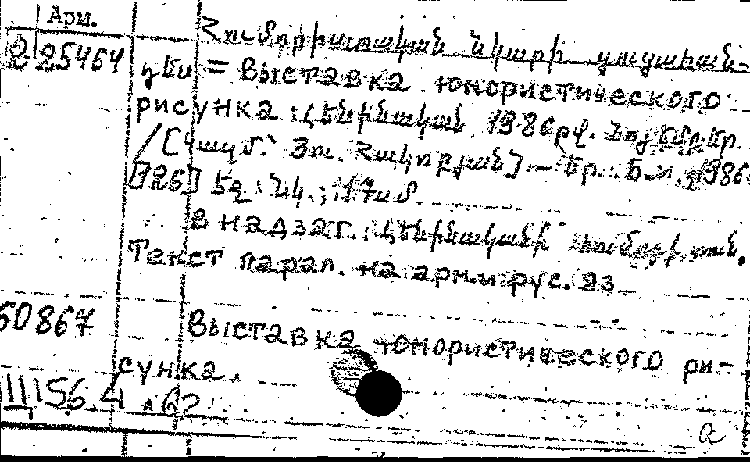 Арм.
Հումորիստական նկարի ցուցահան-
225464 դես = Выставка юмористического
рисунка : Լենինական 1986թվ. նոյեմբեր.
/[Կազմ.՝ Յու. Հակոբյան] — Եր.: Б.и., 1986
[126] էջ : նկ. ; 17սմ.
В надзаг.: Լենինականի
Текст парал. на арм. и рус. яз
50867 Выставка юмористического ри-
сунка.
Ш156.4
а